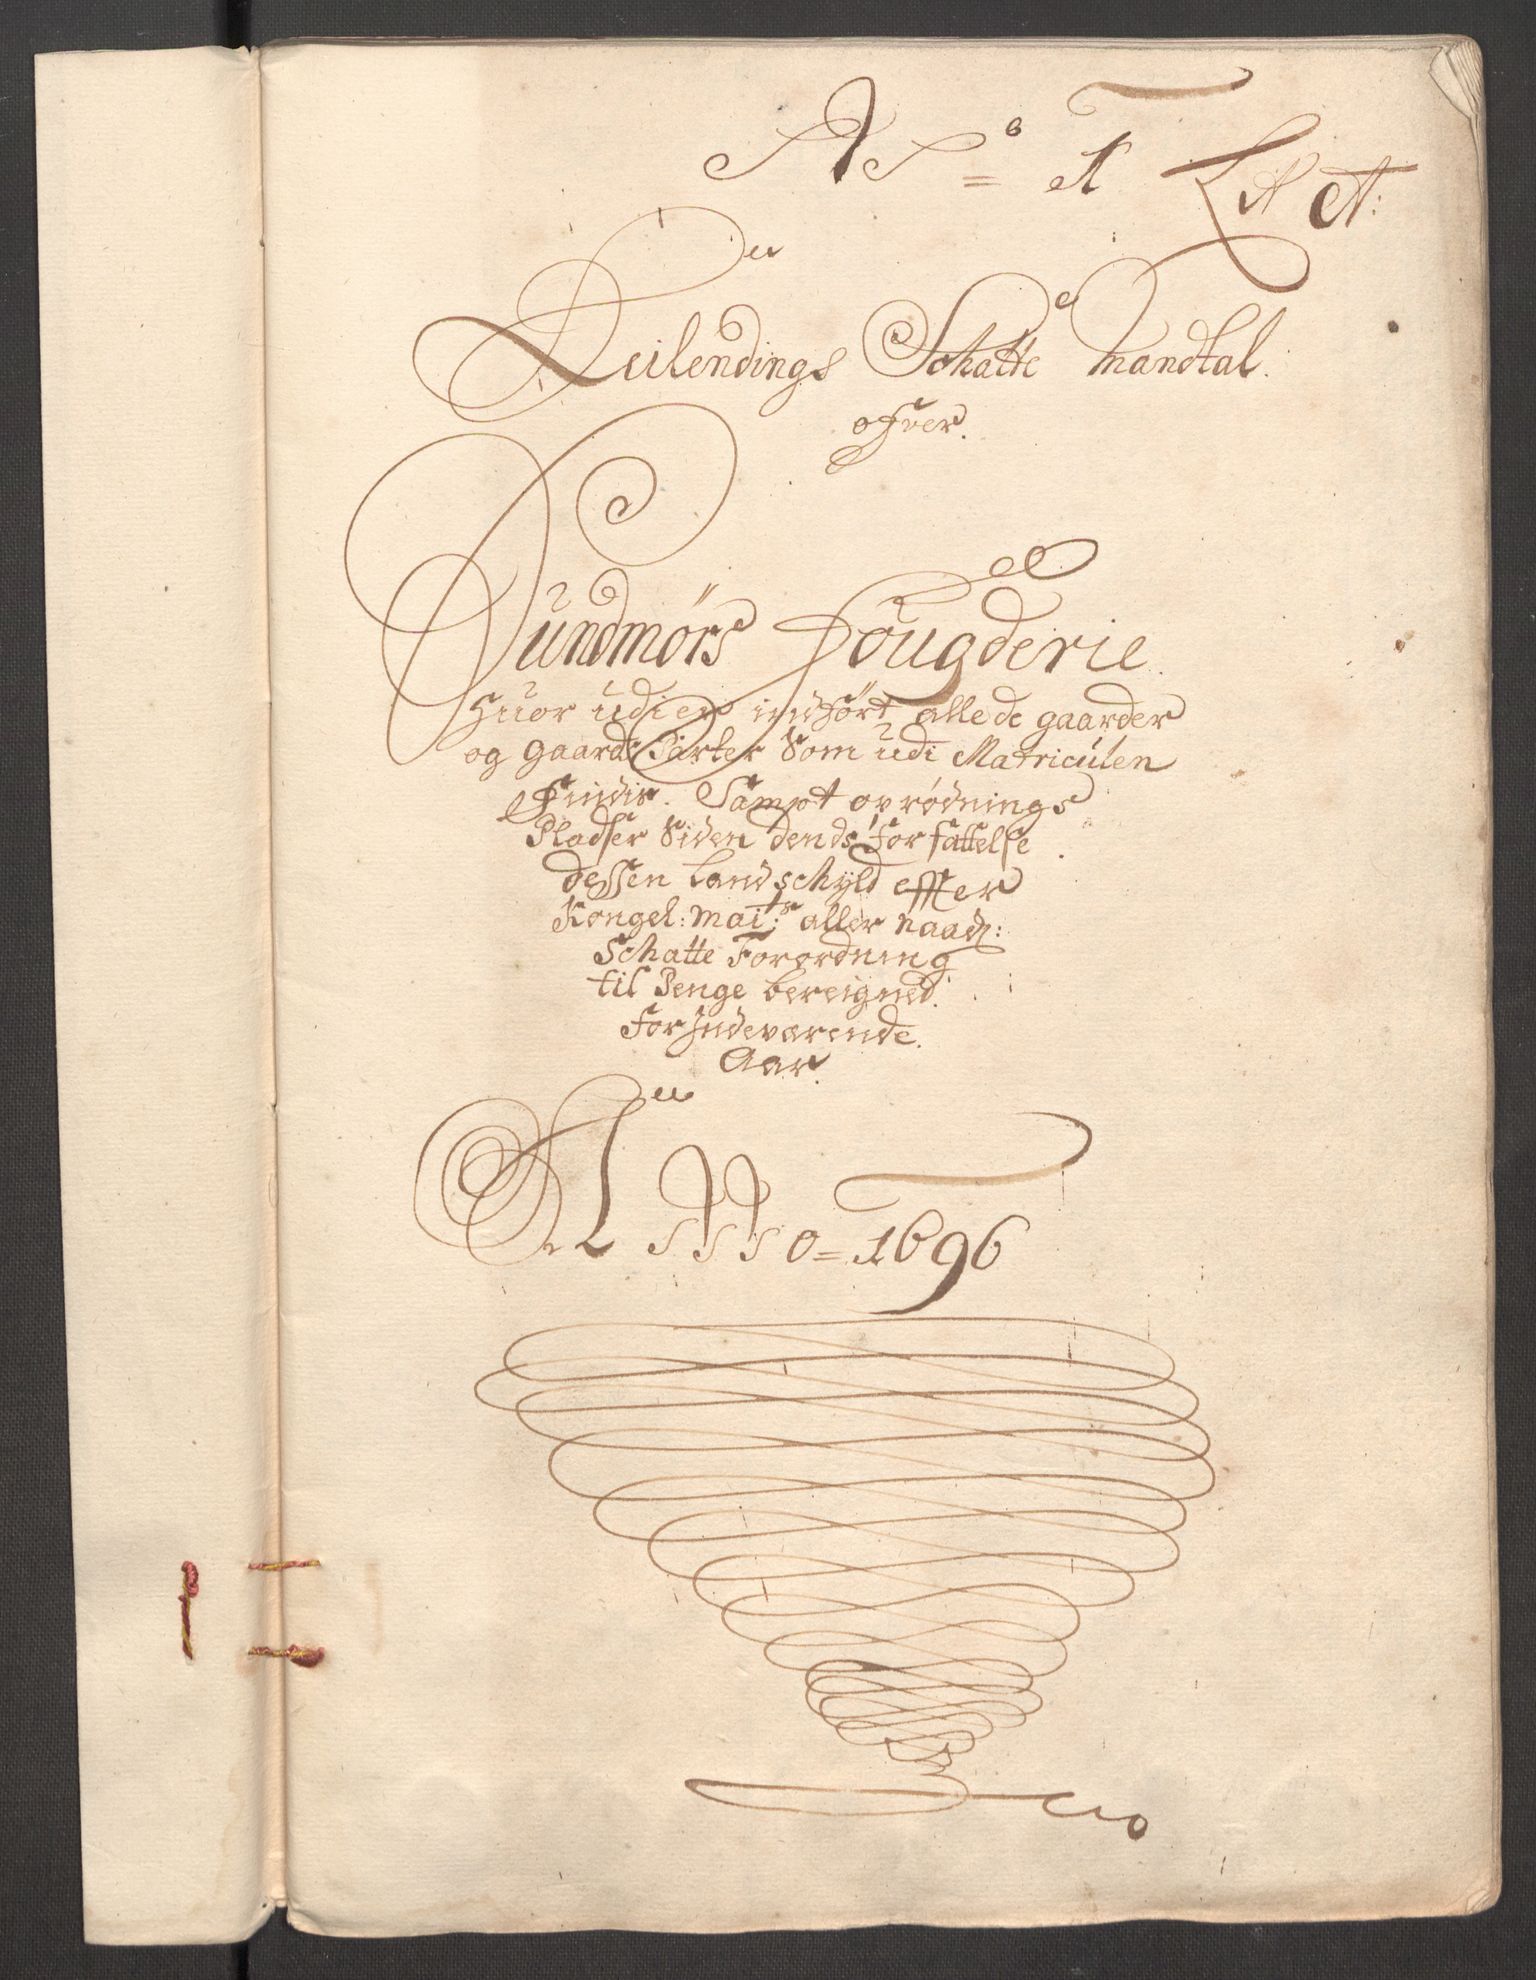 N= 1 Lit A:
Leilendings Schatte Mandtal
ofver.
Sundmørs Fougderie.
Huor udi er indført alle de gaarder
og gaards Parter Som udi Matriculen
Findis. Sampt op rødnings
Pladser Siden dends forfattelse
dessen Landschyld effter
Kongel: Mait:s aller naad:
Schatte Forordning
til Penge bereigned.
For Indeværende.
Aar.
ANNO = 1696